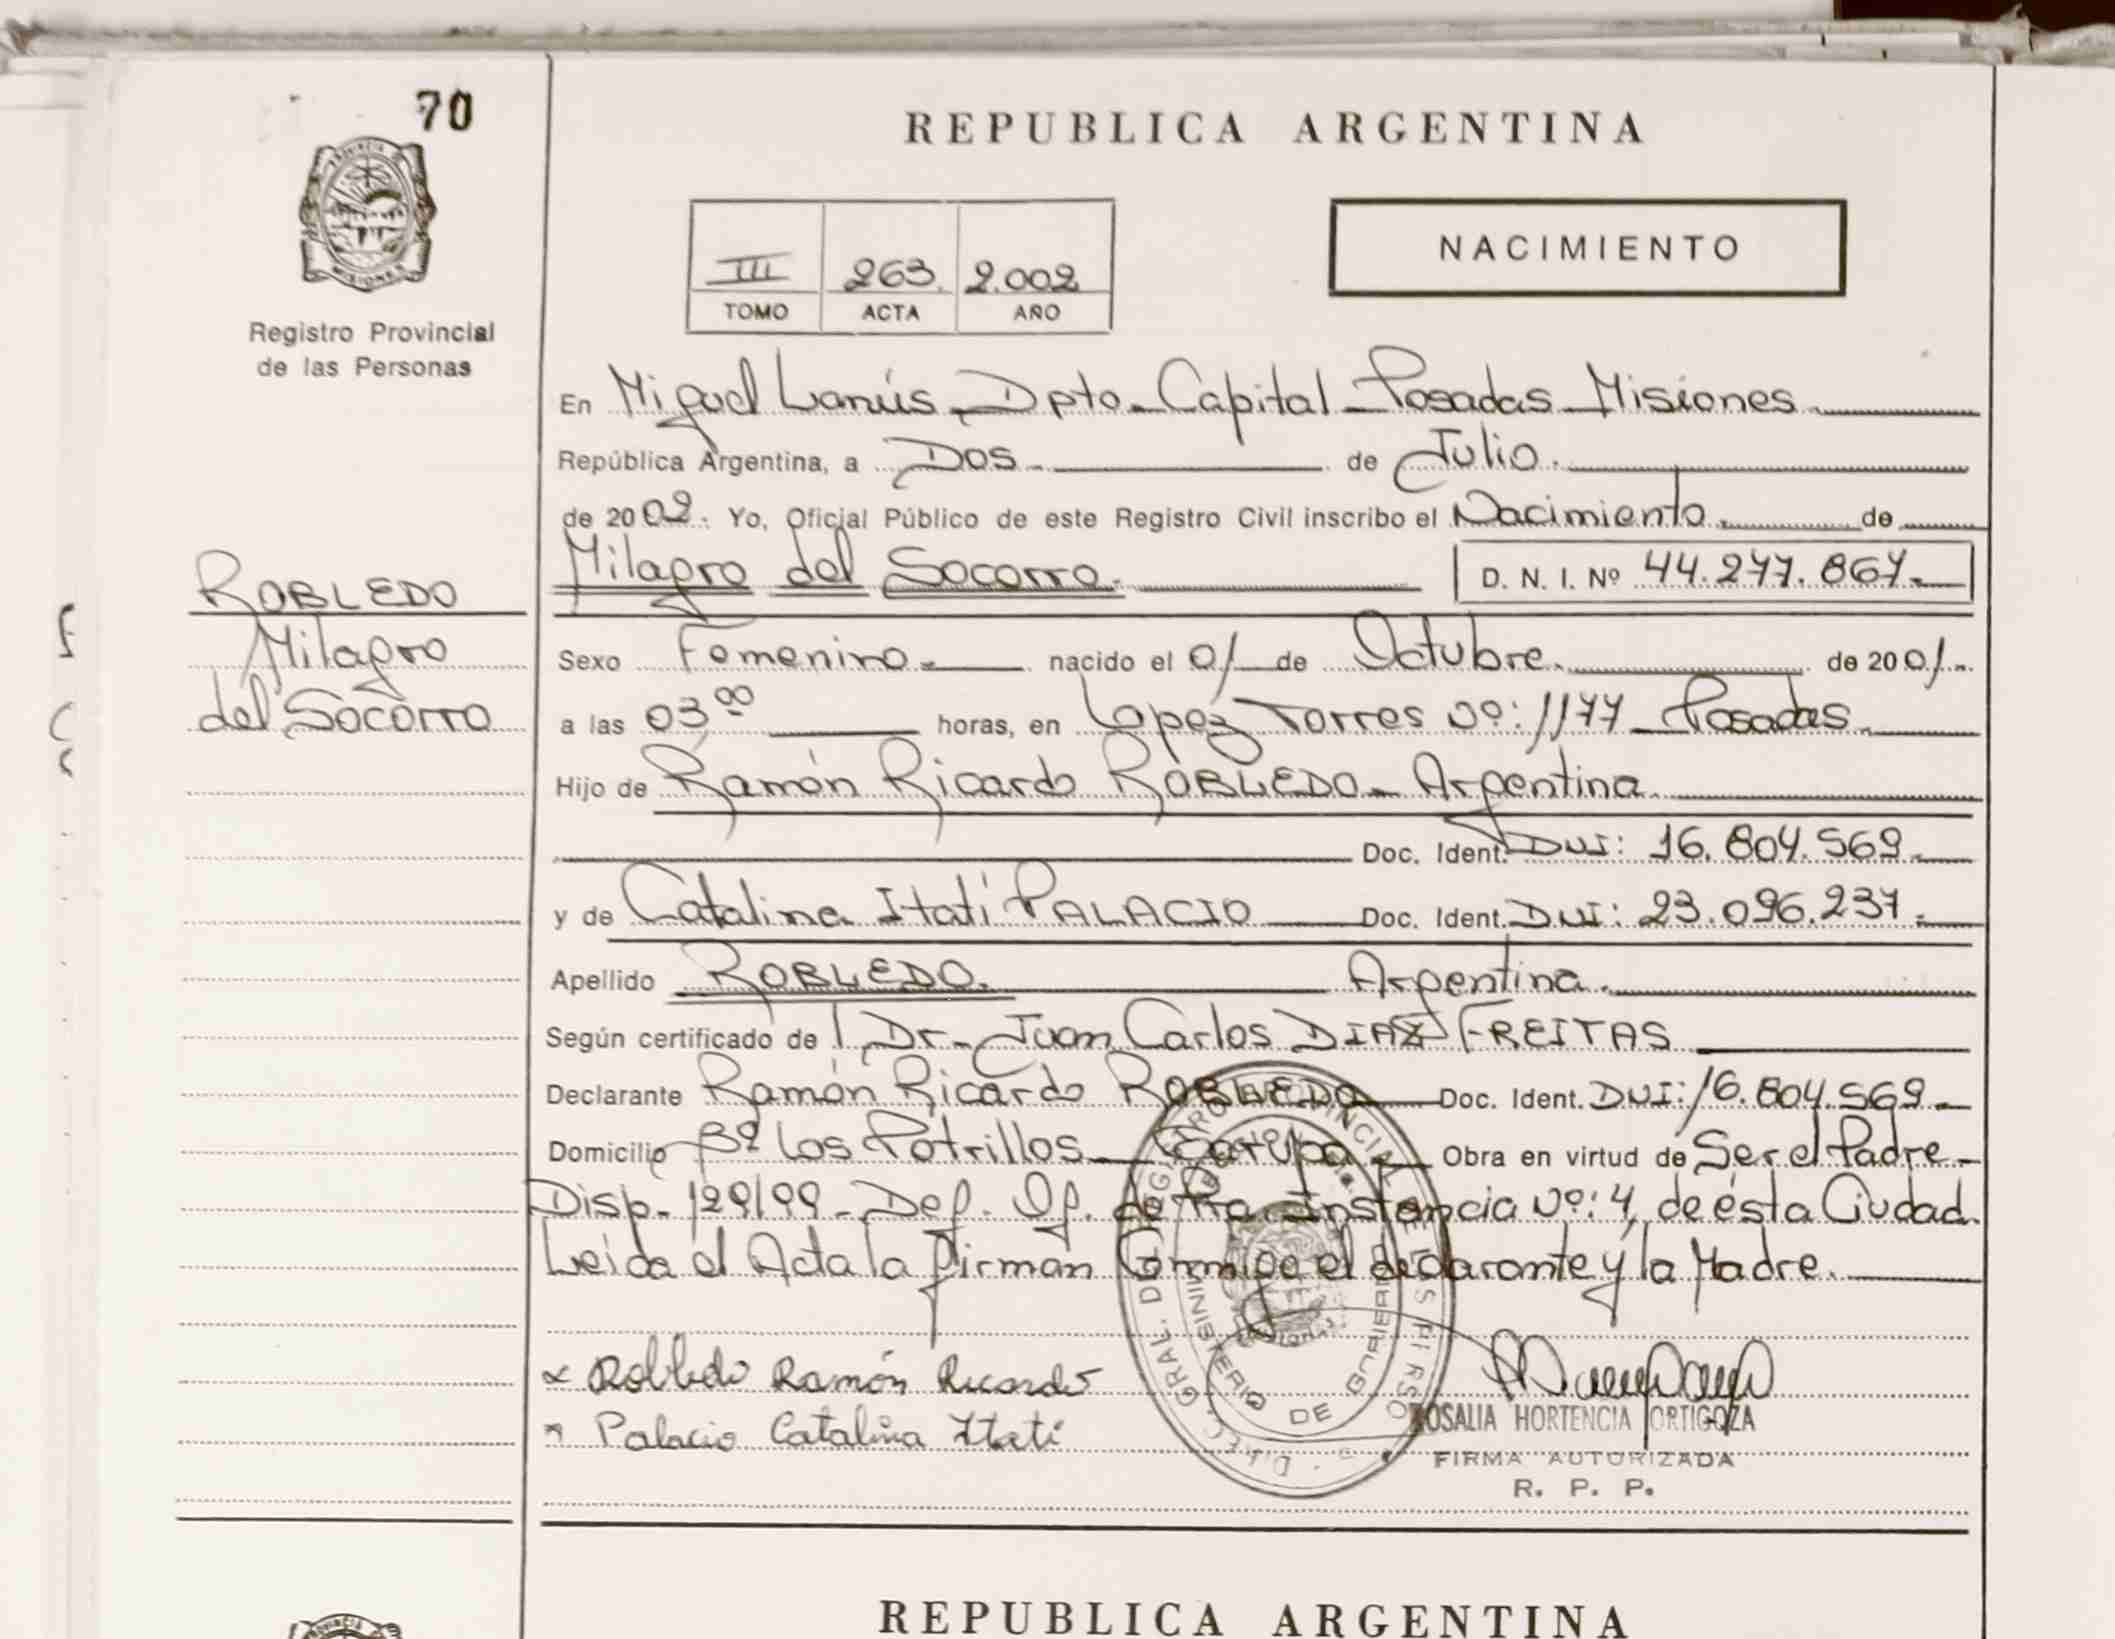 70
REPUBLICA ARGENTINA
PROVINCIA DE
MISIONES
Registro Provincial
de las Personas
III 263. 2.002
TOMO ACTA AÑO
NACIMIENTO
En Miguel Lanús - Dpto - Capital - Posadas - Misiones.
República Argentina, a Dos - de Julio.
de 2002. Yo, Oficial Público de este Registro Civil inscribo el Nacimiento. de
Milagro del Socorro. D. N. I. Nº 44.277.867.-
ROBLEDO
Milagro
del Socorro
Sexo Femenino.- nacido el 01 de Octubre. de 2001.-
a las 03⁰⁰ horas, en Lopez Torres Nº: 1177 - Posadas.
Hijo de Ramón Ricardo ROBLEDO - Argentina.
Doc. Ident. DNI: 16.804.569.-
y de Catalina Itatí PALACIO Doc. Ident. DNI: 23.096.237.-
Apellido ROBLEDO. Argentina.
Según certificado de l Dr - Juan Carlos DIAZ FREITAS
Declarante Ramón Ricardo ROBLEDO Doc. Ident. DNI: 16.804.569 -
Domicilio Bº Los Potrillos - Garupa - Obra en virtud de Ser el Padre -
Disp - 129/99 - Def. Of. de Pra. Instancia Nº: 4, de ésta Ciudad.
Leida el Acta la firman Conmigo el declarante y la Madre.
x Robledo Ramón Ricardo
x Palacio Catalina Itatí
MINISTERIO DE GOBIERNO
ROSALIA HORTENCIA ORTIGOZA
FIRMA AUTORIZADA
R. P. P.
REPUBLICA ARGENTINA